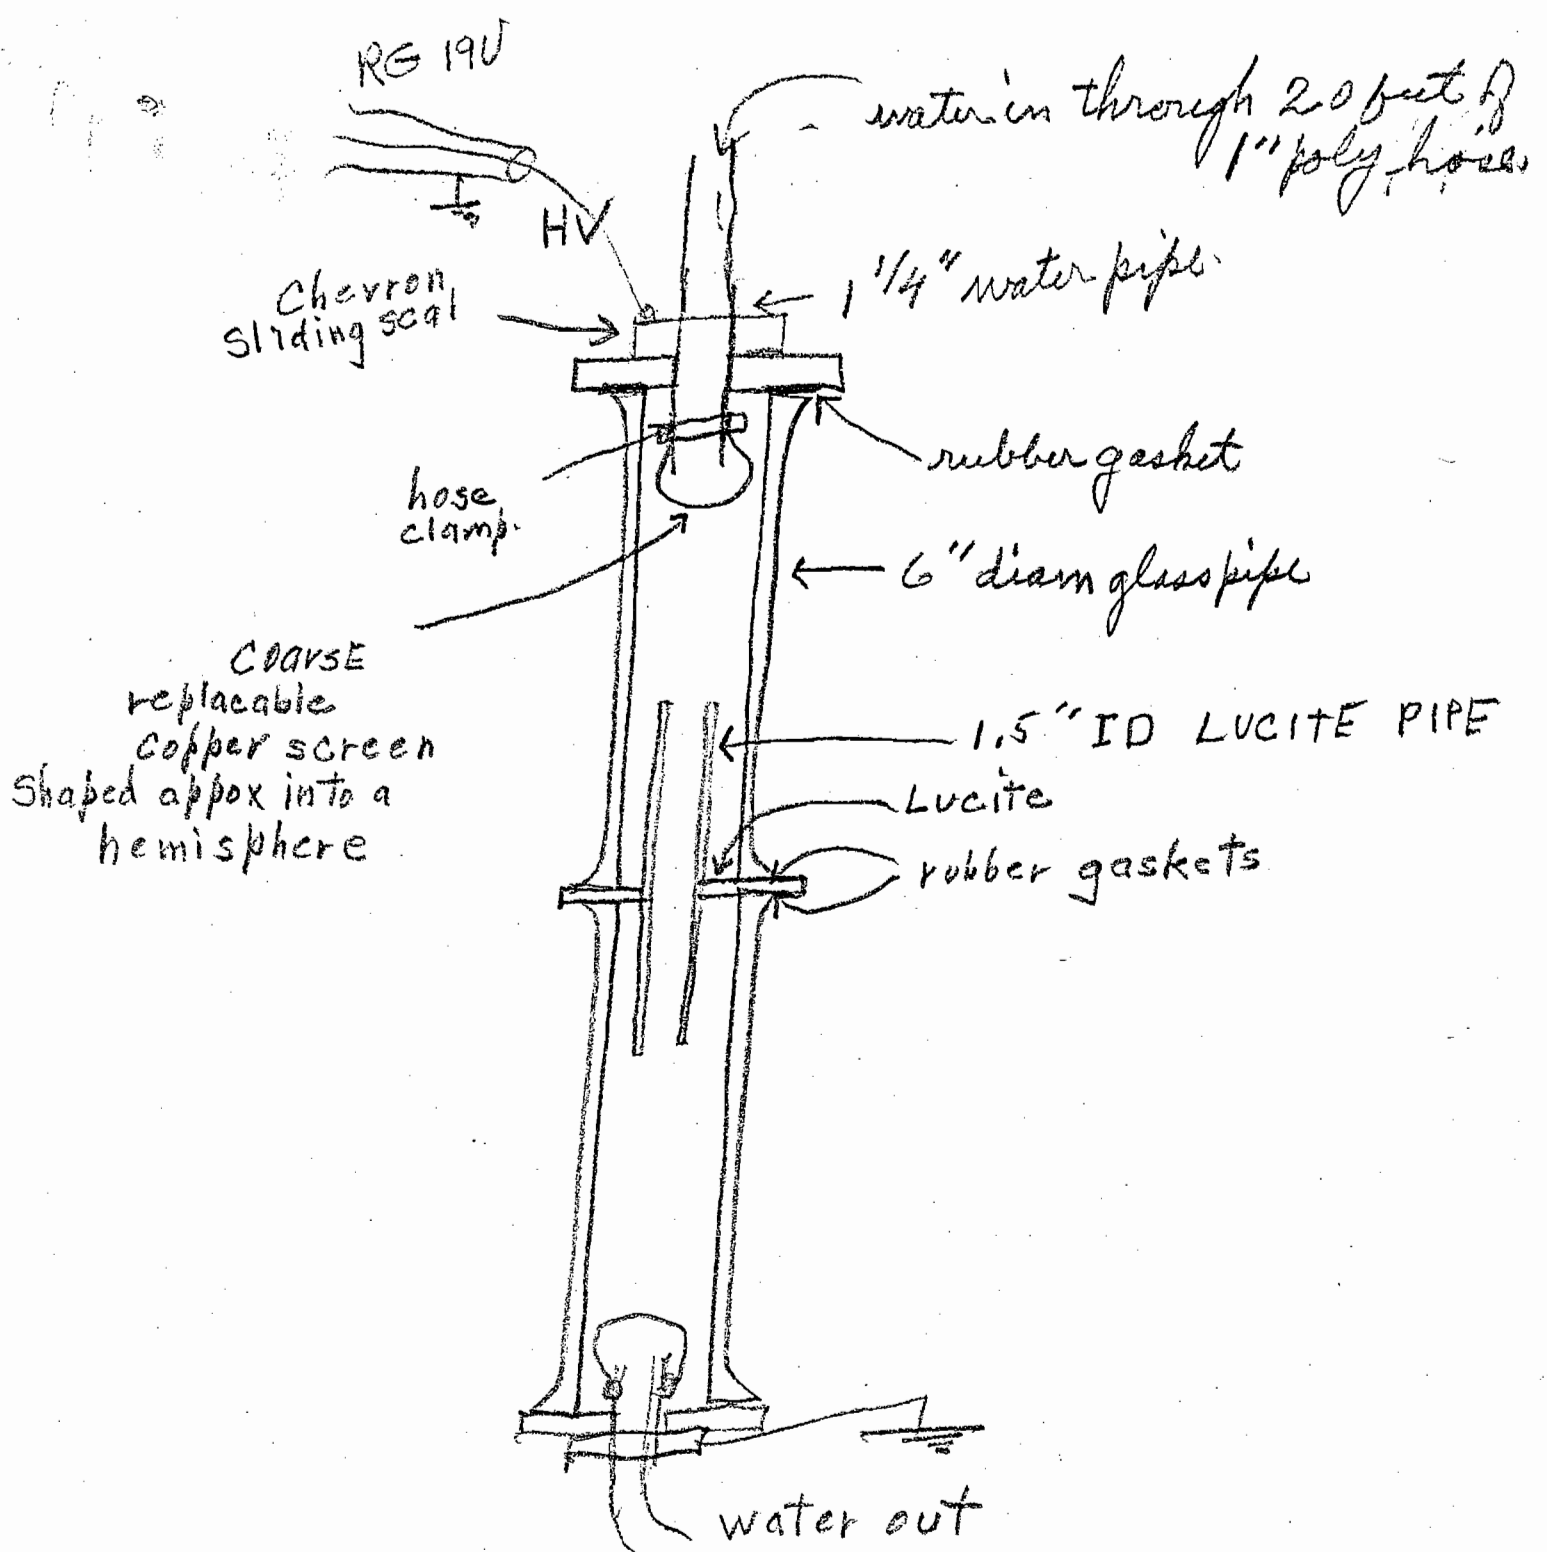 RG 19U
water in through 20 feet of
1" poly hose
HV
1 1/4" water pipe
Chevron
Sliding seal
rubber gasket
hose
clamp.
6" diam glass pipe
COARSE
replacable
copper screen
Shaped appox into a
hemisphere
1.5" ID LUCITE PIPE
Lucite
rubber gaskets
water out